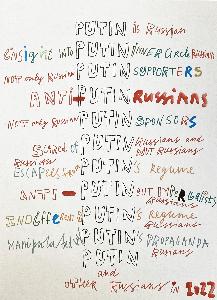 PUTIN is Russian
insight into PUTIN INNER Circle Russian
NOT only Russian PUTIN SUPPORTERS
ANTI-PUTIN RUSSIANS
NOT only Russian PUTIN SPONSORS
SCARED of PUTIN Russians and NOT Russians
Russian Escapees from PUTIN'S Regime
ANTI-PUTIN BUT IMPERialists
INDifferent PUTIN'S Regime Russians
PUTIN PROPAGANDA Russians
PUTIN
and
other Russians in 2022